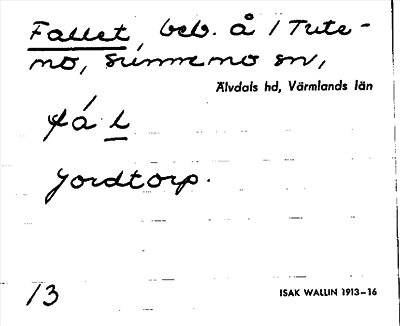 Fallet, beb. å 1 Tute-
mo, Sunnemo sn,
Älvdals hd, Värmlands län
fá L
Jordtorp.
13
ISAK WALLIN 1913–16